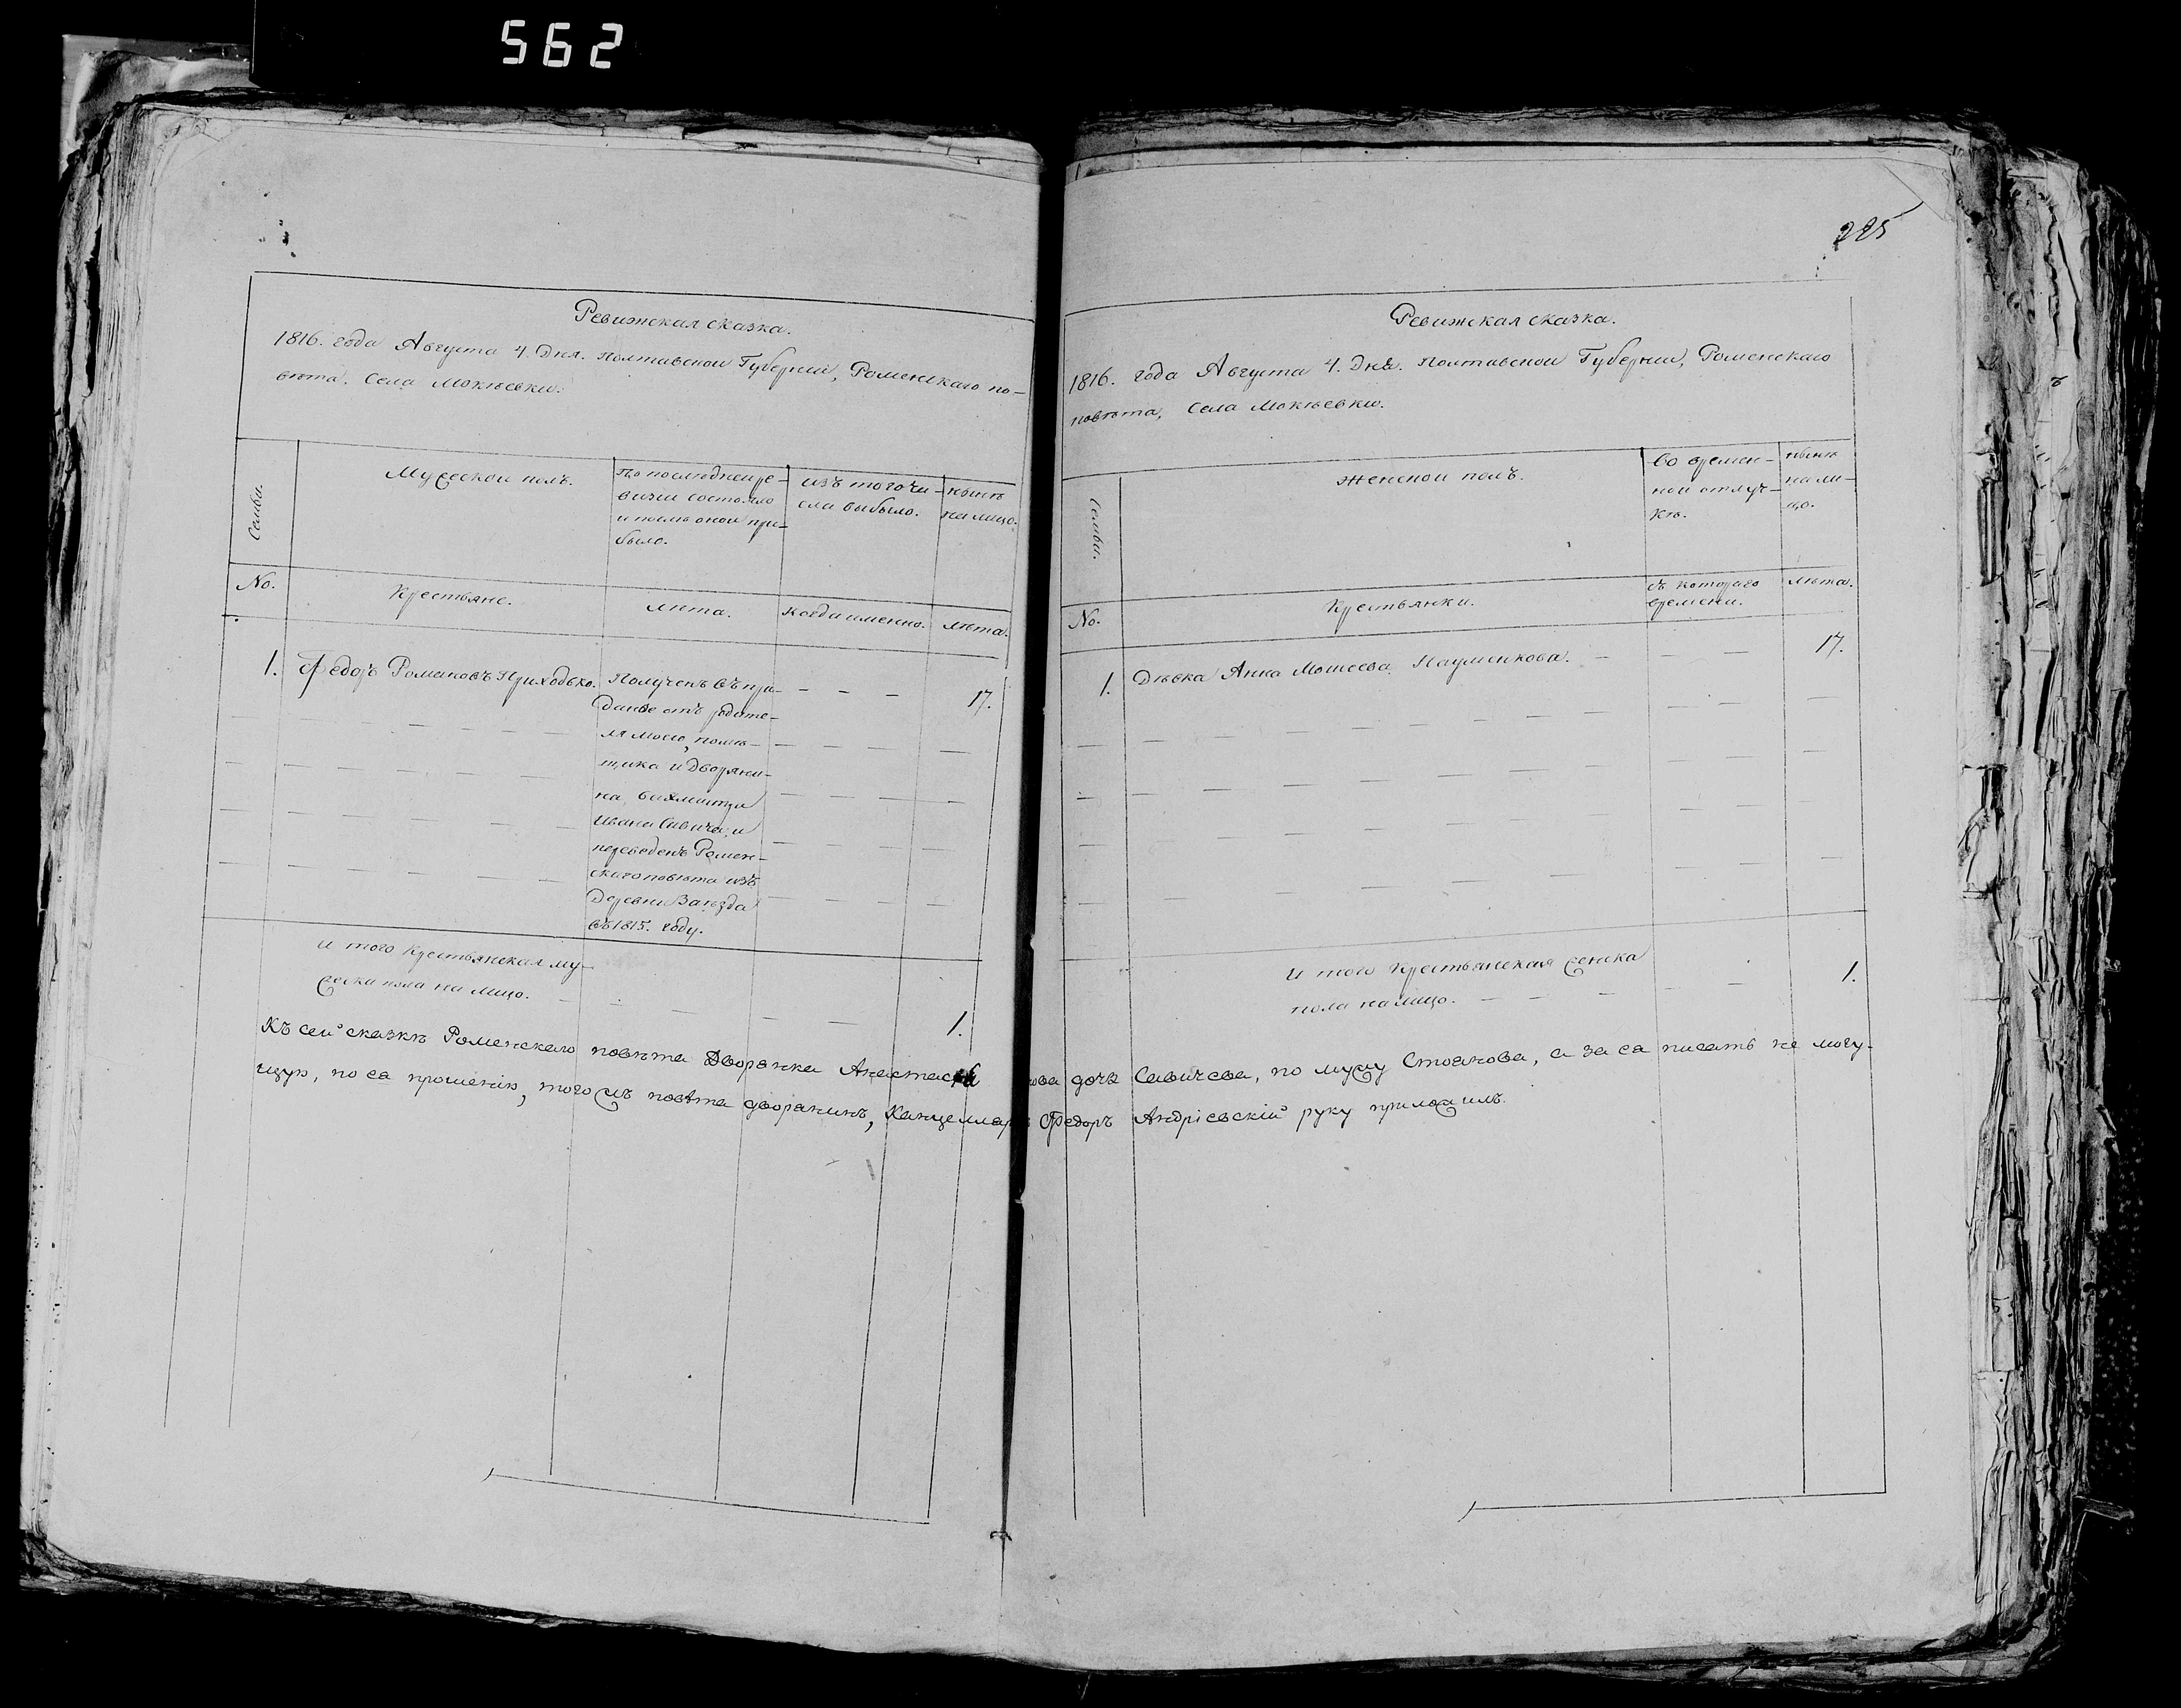 562
225
Ревижская сказка.
1816. года Августа 4. Дня. Полтавской Губерніи, Роменскаго по-
вѣта. Села Мокѣевки.
Семьи.
Мужеской полъ.
По последней ре-
визіи состояло
и послѣ оной при-
было.
изъ того чи-
сла выбыло.
нынѣ
на лицо.
No.
Крестьяне.
лѣта.
когда именно.
лѣта.
1. Федоръ Романовъ Приходько. Полученъ въ при- — — — 17.
данье отъ родите-
ля моего, помѣ-
щика и Дворяни-
на,
Ивана Савича, и
переведенъ Ромен-
скаго повѣта изъ
Деревни Заѣзда
въ 1815. году.
и того Крестьянская му-
жеска пола на лицо. — — — — 1.
Ревижская сказка.
1816. года Августа 4. Дня. Полтавской Губерніи, Роменскаго
повѣта, Села Мокѣевки.
Семьи.
Женской полъ.
Во времен-
ной отлуч-
кѣ.
нынѣ
на ли-
цо.
No.
Крестьянки.
съ котораго
времени.
лѣта.
1. Дѣвка Анна Моисеева Науменкова. — — — 17.
И того Крестьянская женска
пола на лицо. — — — — 1.
Къ сей сказкѣ Роменскаго повѣта Дворянка Анастасія ова дочь Савичева, по мужу Стоянова, а за ея писать не могу-
щую, по ея прошенію, того жъ повѣта дворянинъ, Канцеляр Федоръ Андріевскій руку приложилъ.